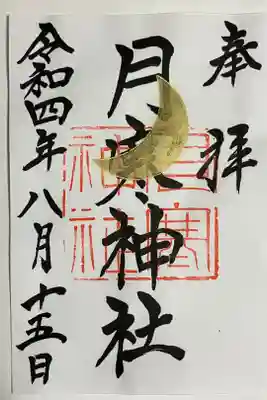 奉拝
月寒神社
令和四年八月十五日